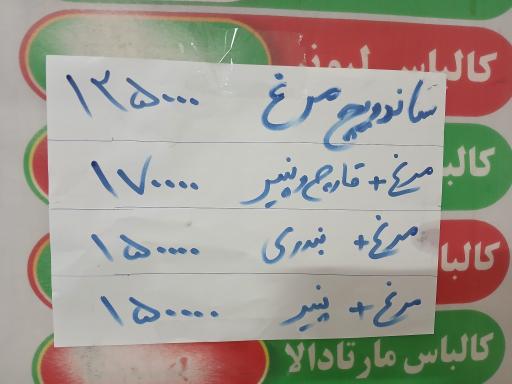 کالباس لیونر
ساندویچ مرغ ۱۳۵۰۰۰
مرغ + قارچ و پنیر ۱۷۰۰۰۰
مرغ + بندری ۱۵۰۰۰۰
مرغ + پنیر ۱۵۰۰۰۰
کالباس مارتادالا